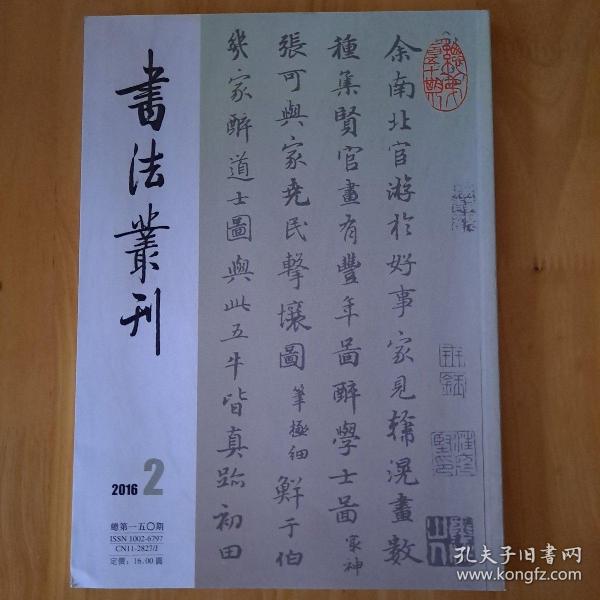 書法叢刊
2016 2
總第一五〇期
ISSN 1002-6797
CN11-2827/J
定價：16.00圓
余南北官游於好事家見韓滉畫數
種集賢官畫有豐年圖醉學士圖 最神
張可與家堯民擊壤圖 筆極細 鮮于伯
幾家醉道士圖與此五牛皆真跡初田
孔夫子旧書网
www.kongfz.com